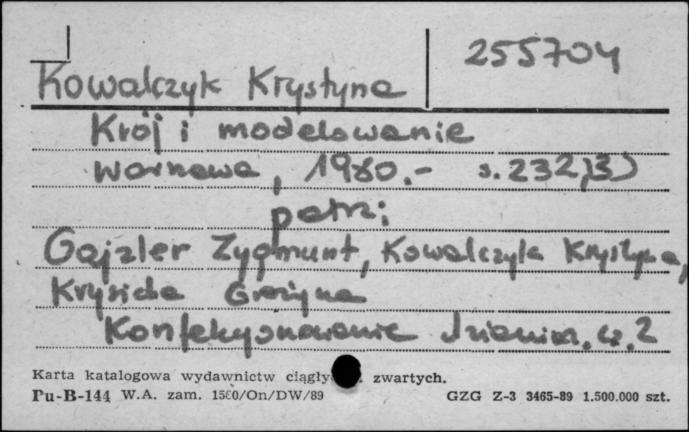 255704
Kowalczyk Krystyna
Krój i modelowanie
Warszawa, 1980.- s. 232,[3]
patrz:
Gajzler Zygmunt, Kowalczyk Krystyna,
Krysicka Grażyna
Konfekcjonowanie dzianin. cz. 2
Karta katalogowa wydawnictw ciągły zwartych.
Pu-B-144 W.A. zam. 1560/On/DW/89 GZG Z-3 3465-89 1.500.000 szt.